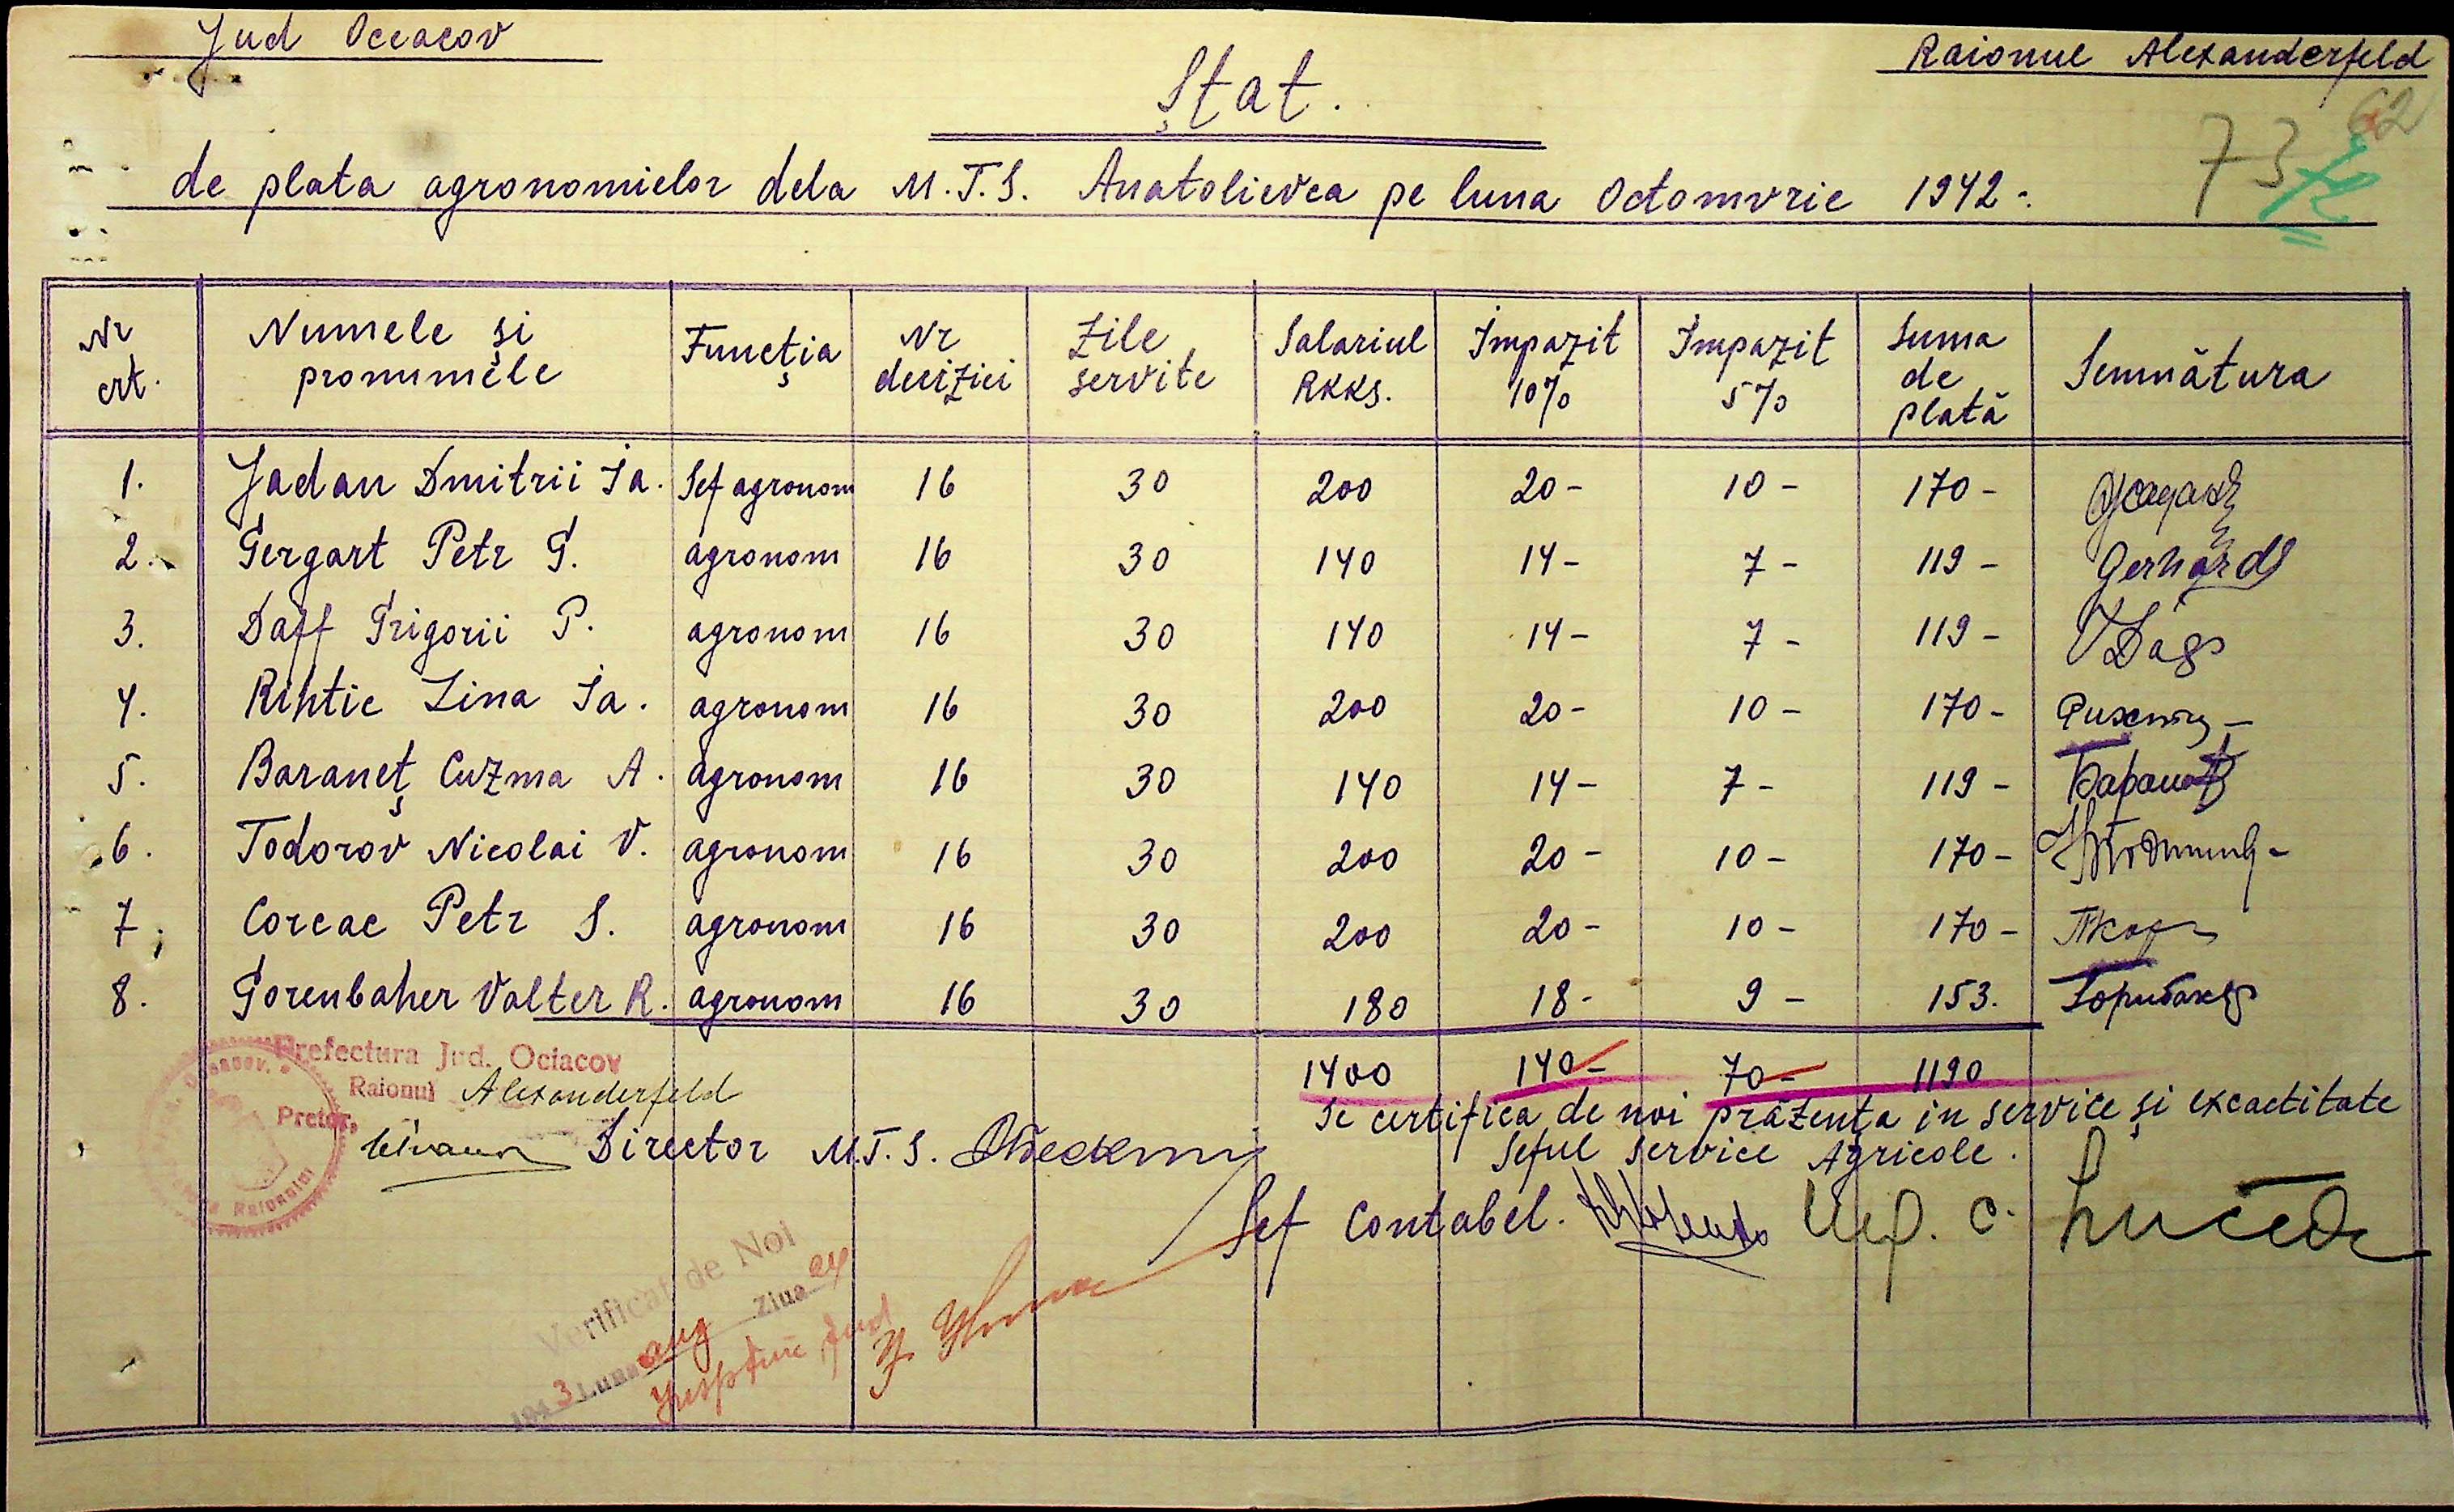 Jud Oceacov
Raionul Alexanderfeld
Ștat.
62
73
de plata agronomielor dela M.T.S. Anatolievca pe luna Octomvrie 1942 -.
Nr crt. Numele și pronumele Funcția Nr deciziei Zile servite Salariul RKKS. Impozit 10% Impozit 5% Suma de plată Semnătura
1. Jadan Dmitrii Ia. Sef agronom 16 30 200 20- 10- 170-
2. Gergart Petr G. agronom 16 30 140 14- 7- 119- Gerhardt
3. Daff Grigorii P. agronom 16 30 140 14- 7- 119-
4. Rihtic Zina Ia. agronom 16 30 200 20- 10- 170-
5. Baraneț Cuzma A. agronom 16 30 140 14- 7- 119-
6. Todorov Nicolai V. agronom 16 30 200 20- 10- 170-
7. Corcac Petr S. agronom 16 30 200 20- 10- 170-
8. Gorenbaher Valter R. agronom 16 30 180 18- 9- 153.
1400 140- 70- 1190
Prefectura Jud. Ociacov
Raionul Alexanderfeld
Pretor,
Se certifica de noi prăzența in service și excactitate
Director M.T.S.
Seful Service Agricole.
Sef Contabel.
Verificat de Noi
1943 Luna aug Ziua